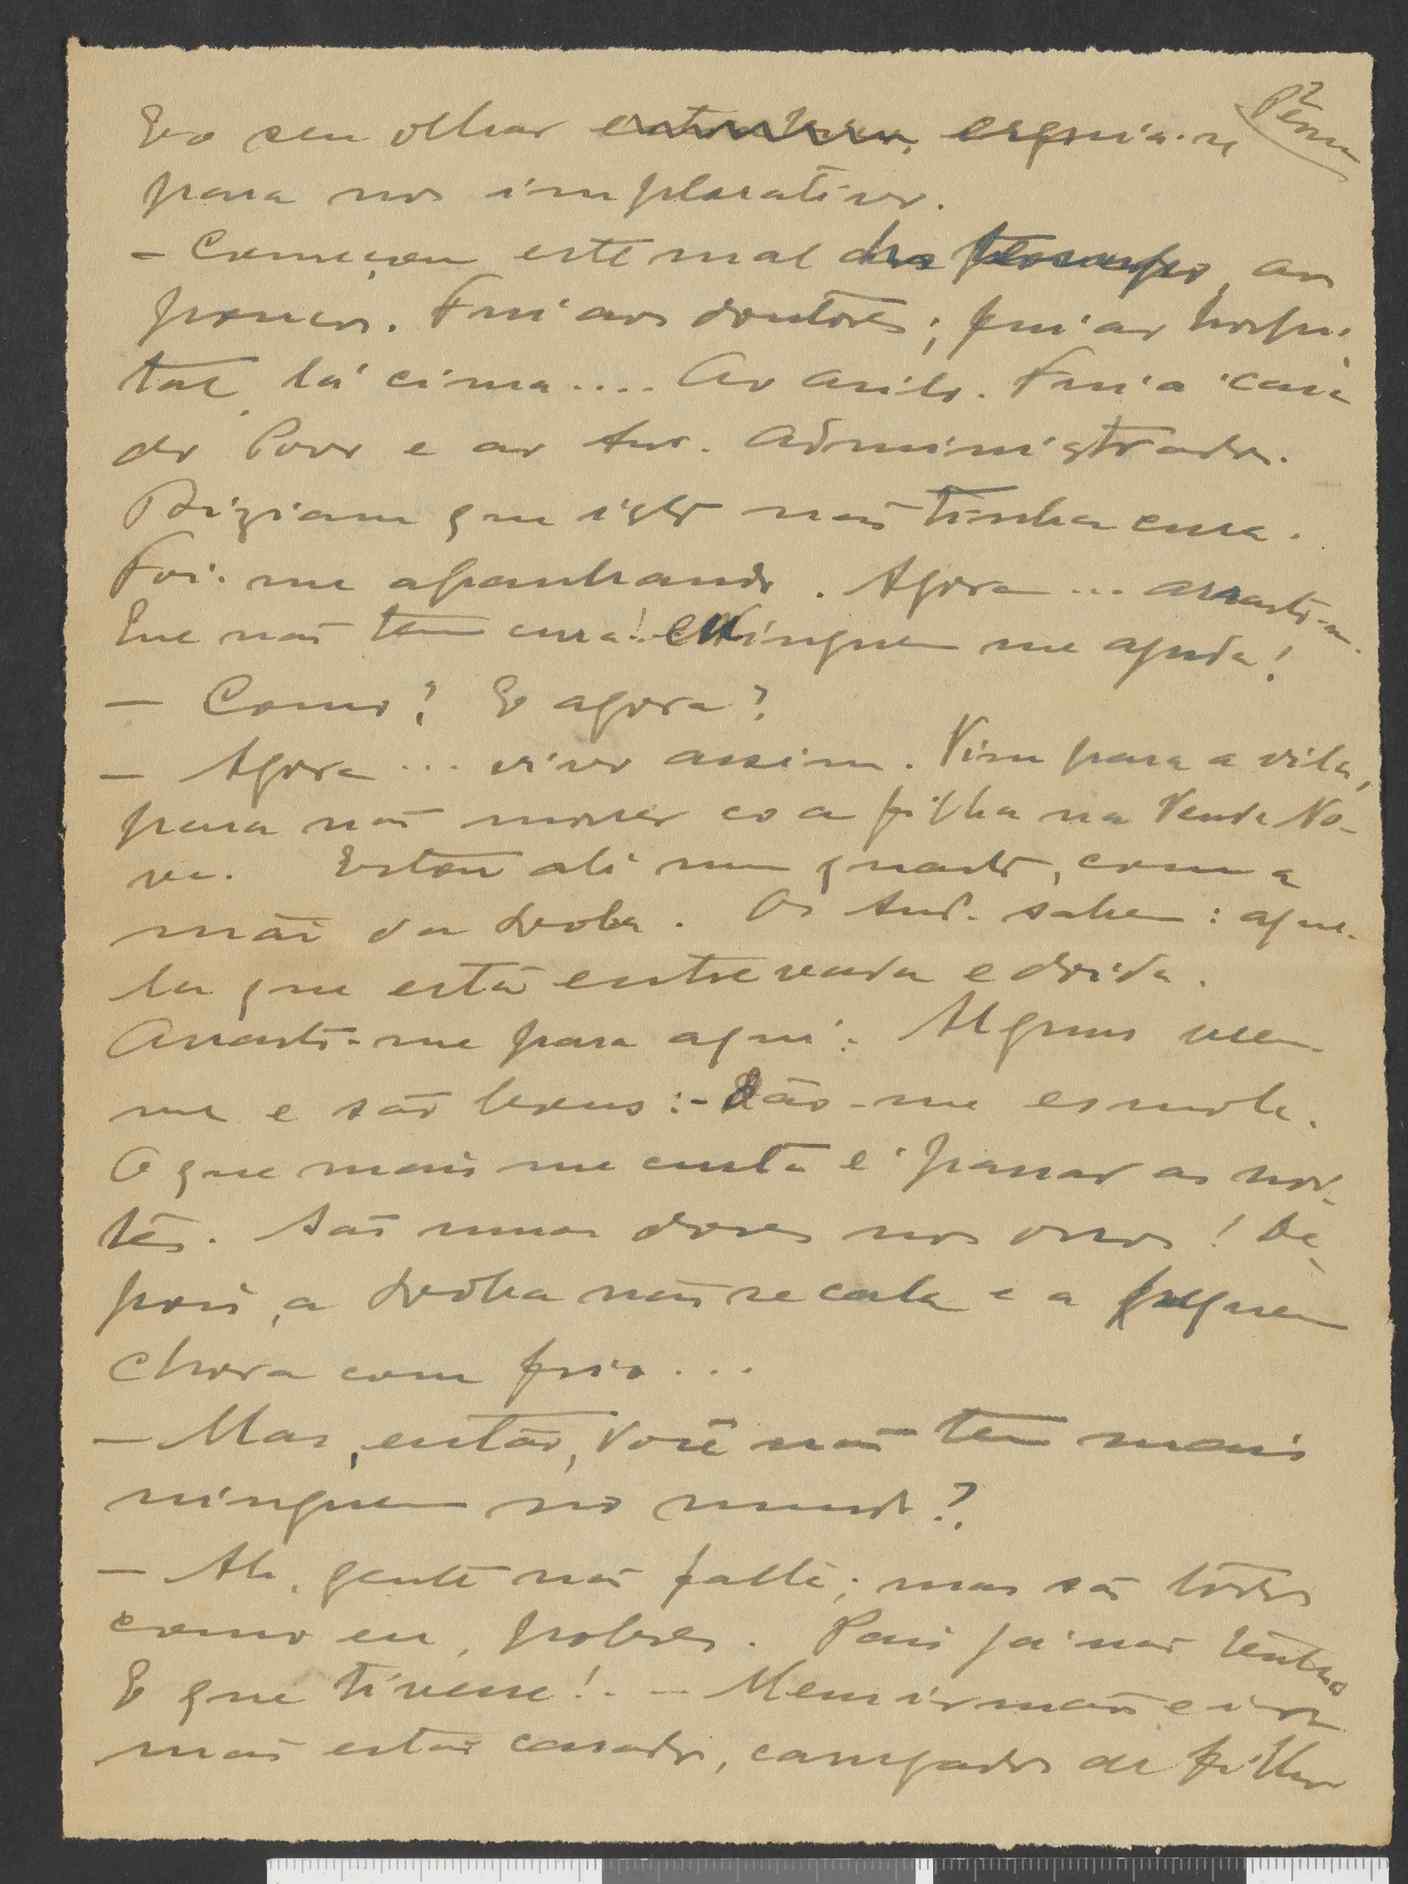 E o seu olhar erguia-se
para nos implorativo.
- Começou este mal aos
poucos. Fui aos doutores; fui ao hospi-
tal, lá cima.... Ao asilo. Fui à casa
do Povo e ao Snr. Administrador.
Diziam que isto não tinha cura.
Foi-me apanhando. Agora... arrasto-me.
Que não tem cura! Ninguem me ajuda!
- Como? E agora?
- Agora... vivo assim. Vim para a vila,
para não morrer co a filha na Venda No-
va. Estou ali num quarto, com a
mãi da Leola. Os Snrs. sabem: aque-
la que está entrevada e doida.
Arrasto-me para aqui: Alguns veem-
me e são bons: - Dão-me esmola.
O que mais me custa é passar as noi-
tes. São umas dores nos ossos! De-
pois, a não se cala e a pequena
chora com frio...
- Mas, então, você não tem mais
ninguem no mundo?
- Ah, gente não falta; mas são todos
como eu, pobres. Pais já não tenho
E que tivesse!... Meu irmão e ir-
mã estão casados, carregados de filhos